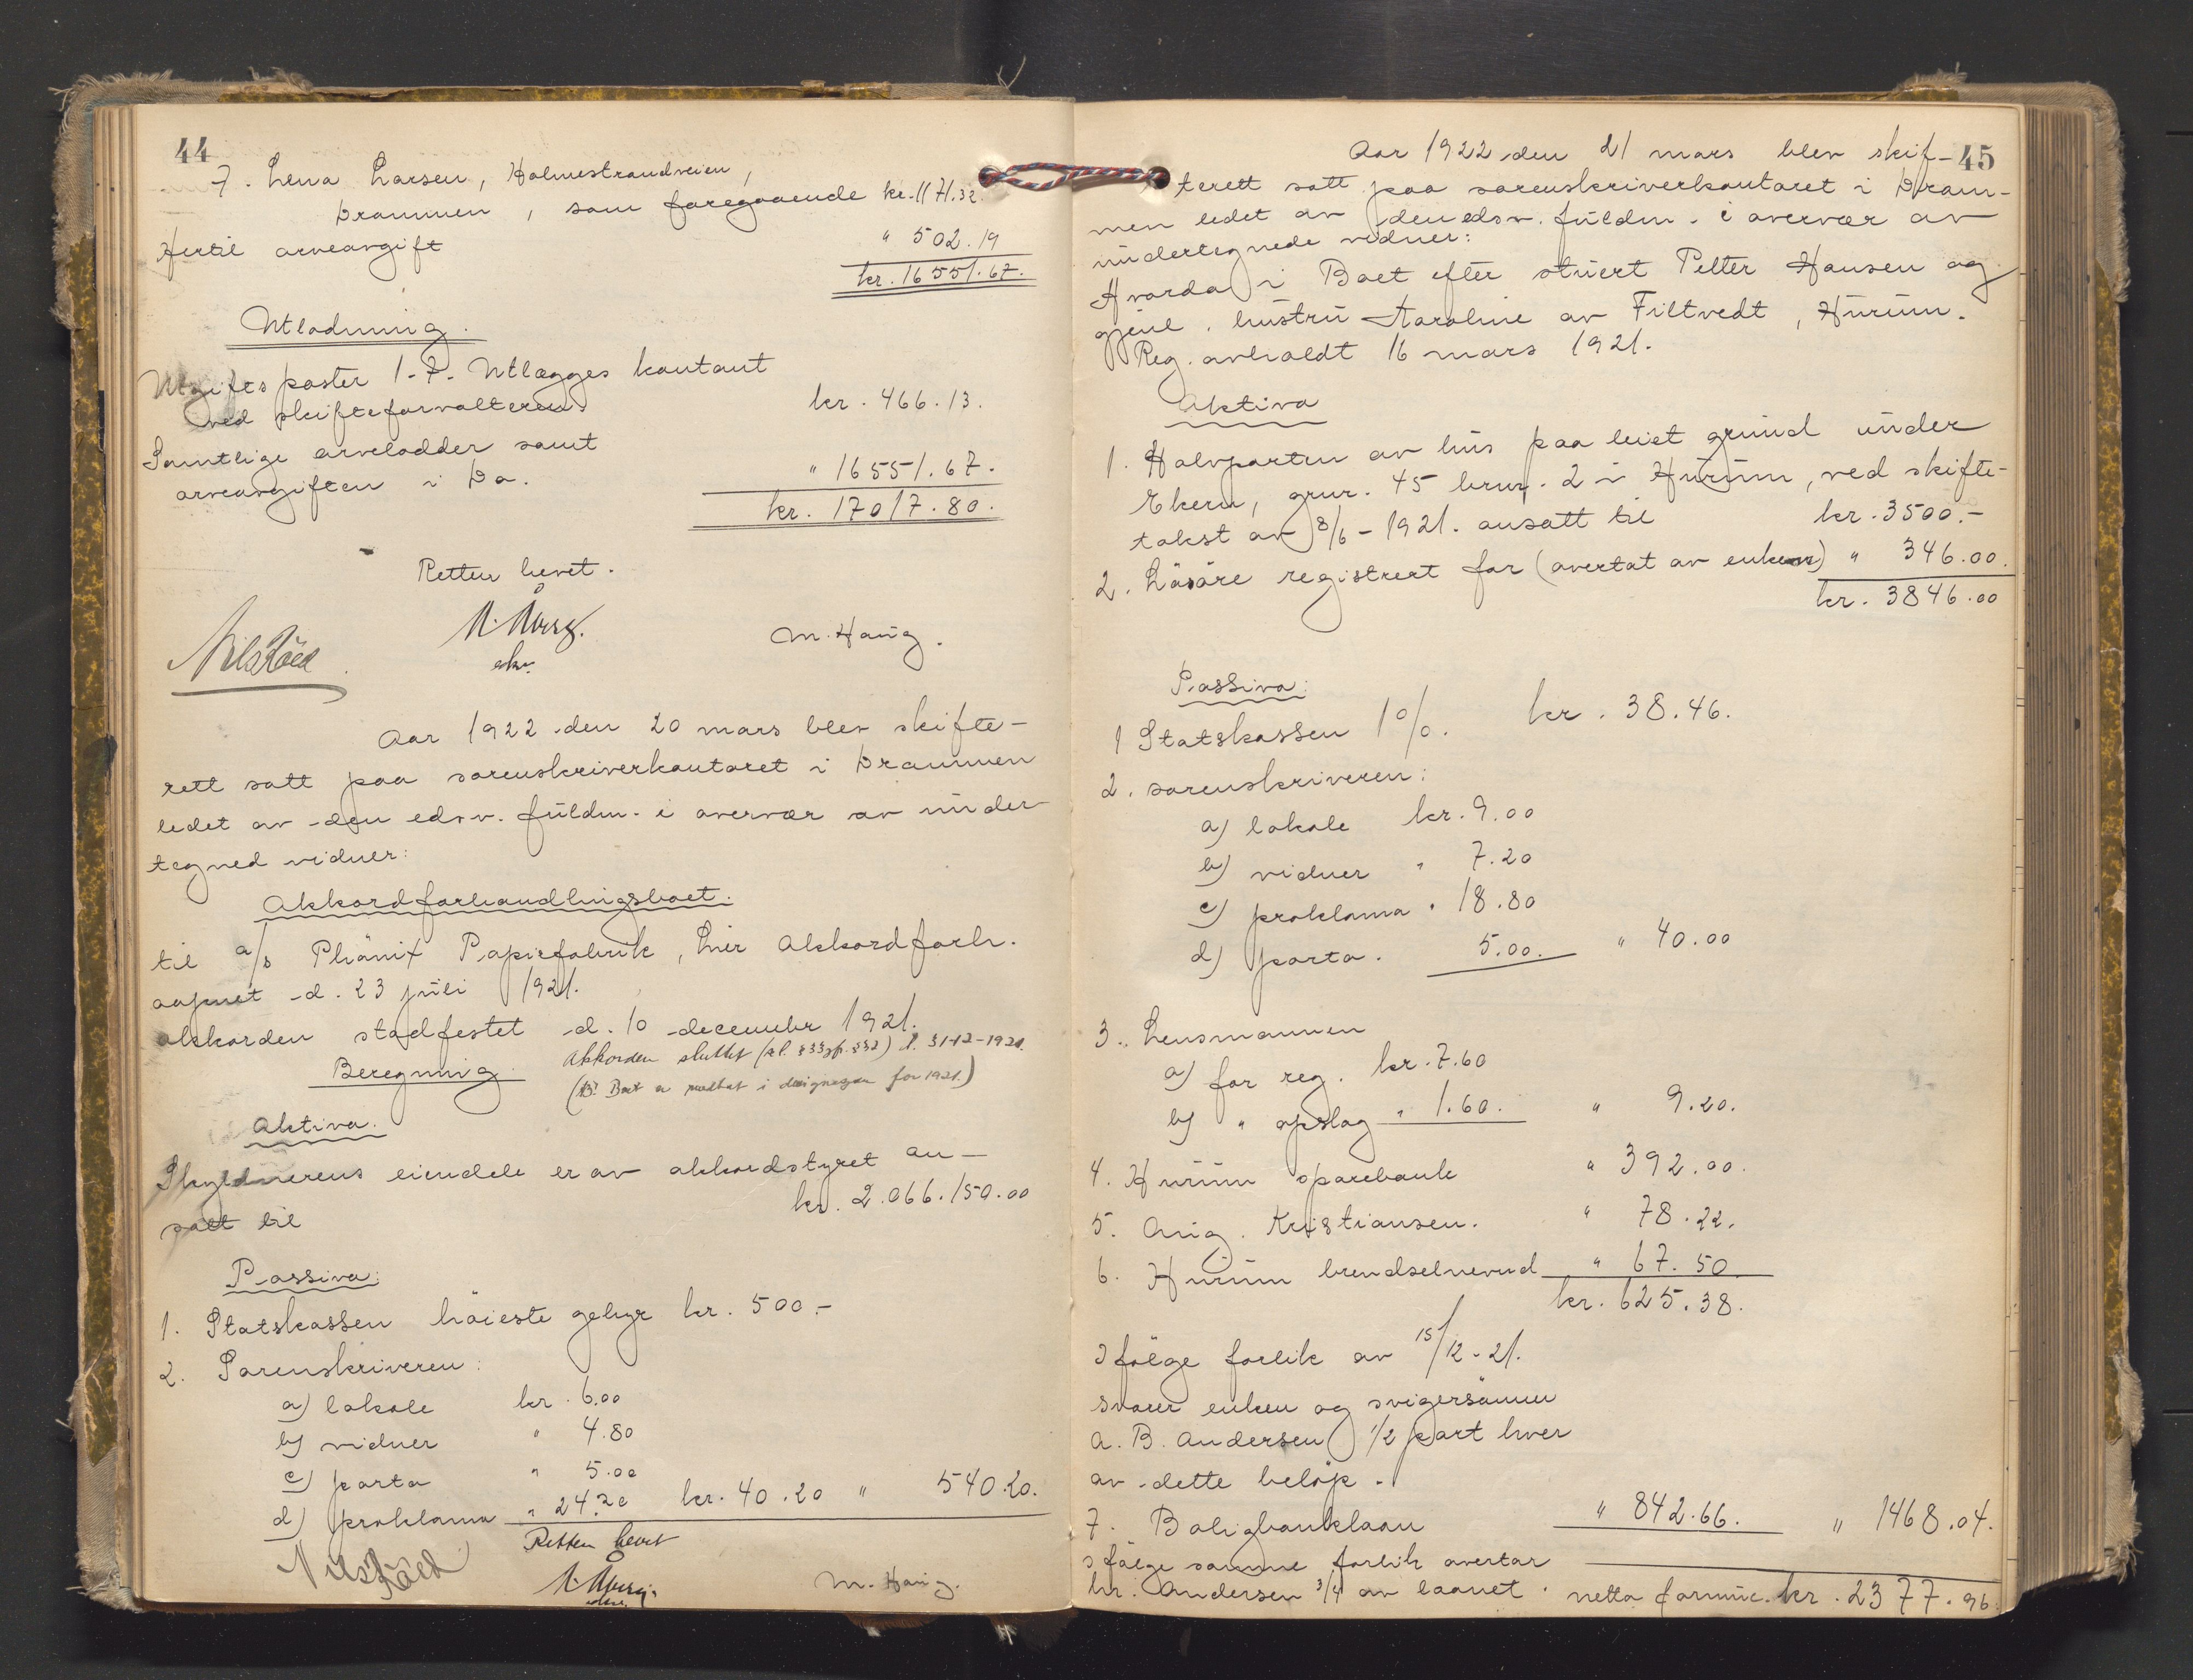 44
7. Lena Larsen, Holmestrandveien,
Drammen, som foregaaende kr. 1171.32.
Hertil arveavgift " 502.19
kr. 16551.67.
Utlodning.
Utgiftsposter 1-7. Utlægges kontant
ved skifteforvalteren kr. 466.13.
Samtlige arvelodder samt
arveavgiften i Do. " 16551.67.
kr. 17017.80.
Retten hevet.
Nils Röed
M. Haug.
Aar 1922 den 20 mars blev skifte-
rett satt paa sorenskriverkontoret i Drammen
ledet av den edsv. fuldm. i overvær av under
tegned vidner:
Akkordforhandlingsboet.
til a/s Phönix Papirfabrik, Lier Akkordforh.
aapnet d. 23 juli 1921.
akkorden stadfestet d. 10 decembr 1921.
Akkorden sluttet (al. §33 jfr. §32) d. 31-12-1921.
Beregning
(NB. Boet er medtat i designasjon for 1921.)
Aktiva.
Skyldnerens eiendele er av akkordstyret an-
satt til kr. 2.066.150.00
Passiva:
1. Statskassen høieste gebyr kr. 500.-
2. Sorenskriveren:
a) lokale kr. 6.00
b) vidner " 4.80
c) porto " 5.00
d) proklama " 24.20 kr. 40.20 " 540.20.
Retten hevet
Nils Röed
M. Haug.
45
Aar 1922 den 21 mars blev skif-
terett satt paa sorenskriverkontoret i Dram-
men ledet av den edsv. fuldm. i overvær av
undertegnede vidner:
Hvorda i Boet efter stuert Petter Hansen og
gjenl. hustru Karoline av Filtvedt, Hurum.
Reg. avholdt 16 mars 1921.
Aktiva
1. Halvparten av hus paa leiet grund under
Ekern, gnr. 45 brnr. 2 i Hurum, ved skifte-
takst av 8/6-1921. ansatt til kr. 3500.-
2. Løsøre registrert for (overtat av enken) " 346.00.
kr. 3846.00
Passiva:
1 Statskassen 1%. kr. 38.46.
2. sorenskriveren:
a) lokale kr. 9.00
b) vidner " 7.20
c) proklama " 18.80
d) porto. 5.00. " 40.00
3. Lensmannen
a) for reg. kr. 7.60
b) " opslag " 1.60. " 9.20.
4. Hurum sparebank " 392.00.
5. Aug. Kristiansen. " 78.22.
6. Hurum brendselnevnd " 67.50
kr. 625.38.
Ifølge forlik av 15/12-21.
svarer enken og svigersønnen
A. B. Andersen 1/2 part hver
av dette beløp.
7. Boligbanklaan " 842.66. " 1468.04.
Ifølge samme forlik overtar
hr. Andersen 3/4 av laanet. netto formue. kr. 2377.96.